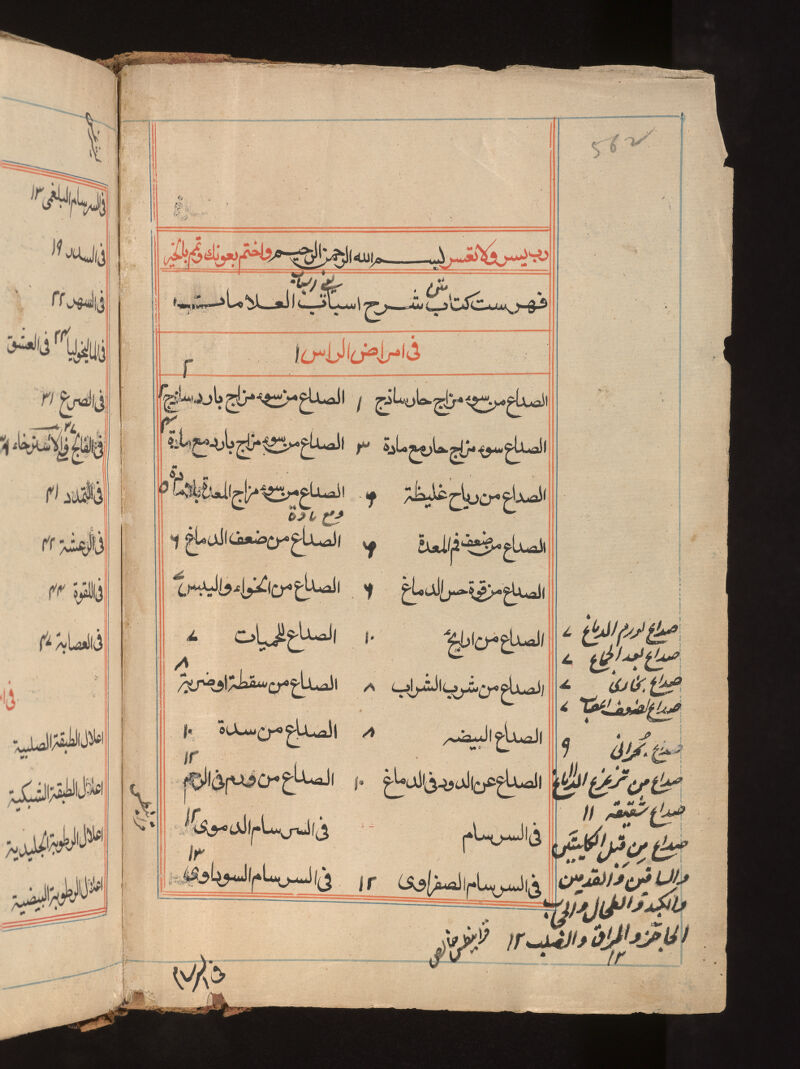 562
رب يسر ولا تعسر بسم الله الرحمن الرحيم واختم بعونك وتمم بالخير
فهرست كتاب شرح اسباب العلامات
فى امراض الراس ١
الصداع من سوء مزاج حار ساذج ١ الصداع من سوء مزاج بارد ساذج ٢
الصداع سوء مزاج حار مع مادة ٣ الصداع من سوء مزاج بارد مع مادة ٤
الصداع من رياح غليظة ٤ الصداع من سوء مزاج المعدة بلا مادة ٥
ومع مادة
الصداع من ضعف فم المعدة ٦ الصداع من ضعف الدماغ ٦
الصداع من قوة حس الدماغ ٦ الصداع من الخواء واليبس ٧
الصداع من ارايح ١٠ الصداع للحميات ٧
الصداع من شرب الشراب ٨ الصداع من سقطة او ضربة ٨
الصداع البيضه ٨ الصداع من سدة ١٠
الصداع عن الدود فى الدماغ ١٠ الصداع من ورم فى الرحم ١٢
فى السرسام فى السرسام الدموى ١٢
فى السرسام الصفراوى ١٢ فى السرسام السوداوى ١٣
صداع لورم الدماغ ٧
صداع بعد الجماع ٧
صداع بخارى ٧
صداع لضعف اعصاب ٧
صداع بحرانى ٩
صداع من تزعزع الدماغ ١١
صداع شقيقه ١١
صداع من قبل الكليتين
والساقين والقدمين
والكبد والطحال والحجاب
الحاجز والمراق والصلب ١٢
١٢
قرانيطس خالص
قرانيطس
فى السرسام
فى السرسام البلغمى ١٣
فى السدر ١٩
فى السهر ٢٢
فى الماليخوليا ٢٤ فى العشق
فى الصرع ٣١
فى الفالج ٣٧ فى الاسترخاء
فى التمدد ٤١
فى الرعشة ٤٢
فى اللقوة ٤٤
فى العصابة ٤٧
اعلال الطبقة الصلبية
اعلال الطبقة الشبكية
اعلال الرطوبة الجليدية
اعلال الرطوبة البيضية